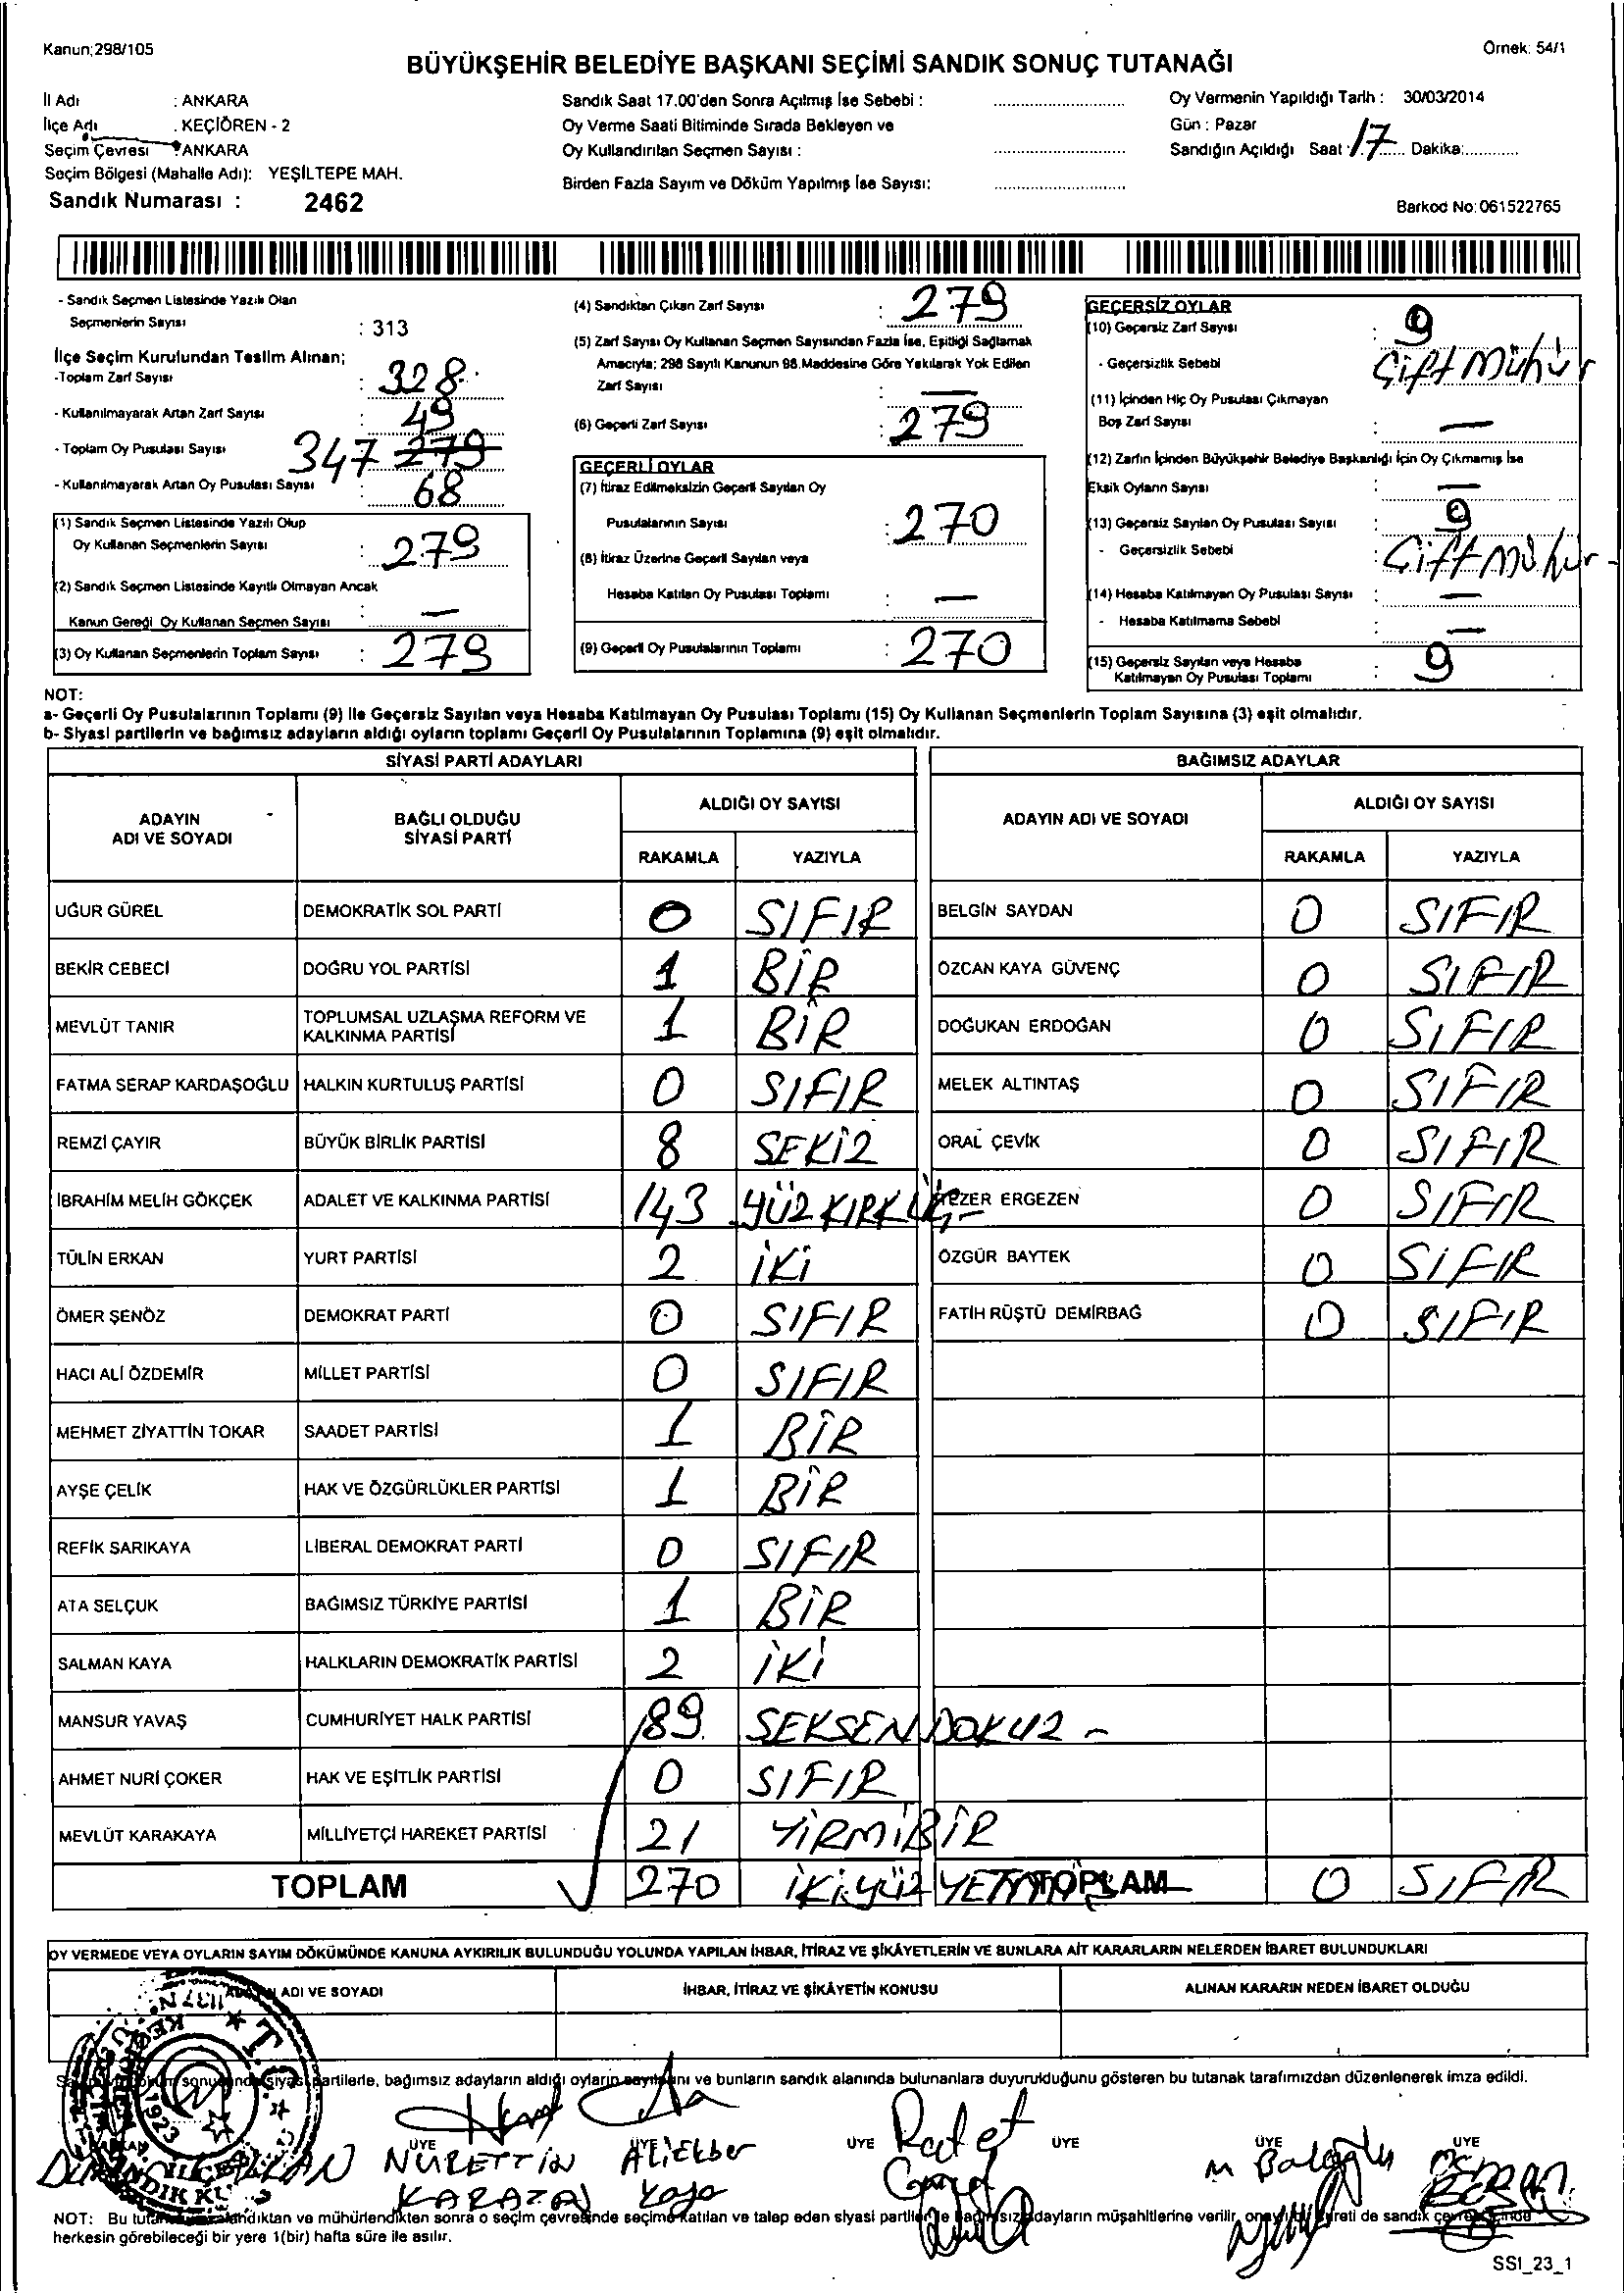 Kanun;298/105
Örnek: 54/1
BÜYÜKŞEHİR BELEDİYE BAŞKANI SEÇİMİ SANDIK SONUÇ TUTANAĞI
İl Adı : ANKARA
İlçe Adı : KEÇİÖREN - 2
Seçim Çevresi : ANKARA
Seçim Bölgesi (Mahalle Adı): YEŞİLTEPE MAH.
Sandık Numarası : 2462
Sandık Saat 17.00'den Sonra Açılmış İse Sebebi :
Oy Verme Saati Bitiminde Sırada Bekleyen ve
Oy Kullandırılan Seçmen Sayısı :
Birden Fazla Sayım ve Döküm Yapılmış İse Sayısı:
Oy Vermenin Yapıldığı Tarih : 30/03/2014
Gün : Pazar
Sandığın Açıldığı Saat : 17 Dakika:
Barkod No:061522765
- Sandık Seçmen Listesinde Yazılı Olan
Seçmenlerin Sayısı : 313
İlçe Seçim Kurulundan Teslim Alınan;
-Toplam Zarf Sayısı : 328
- Kullanılmayarak Artan Zarf Sayısı : 49
- Toplam Oy Pusulası Sayısı 347 279
- Kullanılmayarak Artan Oy Pusulası Sayısı 68
(1) Sandık Seçmen Listesinde Yazılı Olup
Oy Kullanan Seçmenlerin Sayısı : 279
(2) Sandık Seçmen Listesinde Kayıtlı Olmayan Ancak
Kanun Gereği Oy Kullanan Seçmen Sayısı : —
(3) Oy Kullanan Seçmenlerin Toplam Sayısı : 279
(4) Sandıktan Çıkan Zarf Sayısı : 279
(5) Zarf Sayısı Oy Kullanan Seçmen Sayısından Fazla İse, Eşitliği Sağlamak
Amacıyla; 298 Sayılı Kanunun 98.Maddesine Göre Yakılarak Yok Edilen
Zarf Sayısı : —
(6) Geçerli Zarf Sayısı : 279
GEÇERLİ OYLAR
(7) İtiraz Edilmeksizin Geçerli Sayılan Oy
Pusulalarının Sayısı : 270
(8) İtiraz Üzerine Geçerli Sayılan veya
Hesaba Katılan Oy Pusulası Toplamı : —
(9) Geçerli Oy Pusulalarının Toplamı : 270
GEÇERSİZ OYLAR
(10) Geçersiz Zarf Sayısı : 9
- Geçersizlik Sebebi : Çift Mühür
(11) İçinden Hiç Oy Pusulası Çıkmayan
Boş Zarf Sayısı : —
(12) Zarfın İçinden Büyükşehir Belediye Başkanlığı İçin Oy Çıkmamış İse
Eksik Oyların Sayısı : —
(13) Geçersiz Sayılan Oy Pusulası Sayısı : 9
- Geçersizlik Sebebi : Çift Mühür
(14) Hesaba Katılmayan Oy Pusulası Sayısı : —
- Hesaba Katılmama Sebebi : —
(15) Geçersiz Sayılan veya Hesaba
Katılmayan Oy Pusulası Toplamı : 9
NOT:
a- Geçerli Oy Pusulalarının Toplamı (9) İle Geçersiz Sayılan veya Hesaba Katılmayan Oy Pusulası Toplamı (15) Oy Kullanan Seçmenlerin Toplam Sayısına (3) eşit olmalıdır.
b- Siyasi partilerin ve bağımsız adayların aldığı oyların toplamı Geçerli Oy Pusulalarının Toplamına (9) eşit olmalıdır.
SİYASİ PARTİ ADAYLARI
ADAYIN ADI VE SOYADI BAĞLI OLDUĞU SİYASİ PARTİ ALDIĞI OY SAYISI
RAKAMLA YAZIYLA
UĞUR GÜREL DEMOKRATİK SOL PARTİ 0 SIFIR
BEKİR CEBECİ DOĞRU YOL PARTİSİ 1 BİR
MEVLÜT TANIR TOPLUMSAL UZLAŞMA REFORM VE KALKINMA PARTİSİ 1 BİR
FATMA SERAP KARDAŞOĞLU HALKIN KURTULUŞ PARTİSİ 0 SIFIR
REMZİ ÇAYIR BÜYÜK BİRLİK PARTİSİ 8 SEKİZ
İBRAHİM MELİH GÖKÇEK ADALET VE KALKINMA PARTİSİ 143 YÜZ KIRK ÜÇ
TÜLİN ERKAN YURT PARTİSİ 2 İKİ
ÖMER ŞENÖZ DEMOKRAT PARTİ 0 SIFIR
HACI ALİ ÖZDEMİR MİLLET PARTİSİ 0 SIFIR
MEHMET ZİYATTİN TOKAR SAADET PARTİSİ 1 BİR
AYŞE ÇELİK HAK VE ÖZGÜRLÜKLER PARTİSİ 1 BİR
REFİK SARIKAYA LİBERAL DEMOKRAT PARTİ 0 SIFIR
ATA SELÇUK BAĞIMSIZ TÜRKİYE PARTİSİ 1 BİR
SALMAN KAYA HALKLARIN DEMOKRATİK PARTİSİ 2 İKİ
MANSUR YAVAŞ CUMHURİYET HALK PARTİSİ 89 SEKSEN DOKUZ -
AHMET NURİ ÇOKER HAK VE EŞİTLİK PARTİSİ 0 SIFIR
MEVLÜT KARAKAYA MİLLİYETÇİ HAREKET PARTİSİ 21 YİRMİBİR
TOPLAM 270 İKİYÜZ YETMİŞ
BAĞIMSIZ ADAYLAR
ADAYIN ADI VE SOYADI ALDIĞI OY SAYISI
RAKAMLA YAZIYLA
BELGİN SAYDAN 0 SIFIR
ÖZCAN KAYA GÜVENÇ 0 SIFIR
DOĞUKAN ERDOĞAN 0 SIFIR
MELEK ALTINTAŞ 0 SIFIR
ORAL ÇEVİK 0 SIFIR
ERGEZEN 0 SIFIR
ÖZGÜR BAYTEK 0 SIFIR
FATİH RÜŞTÜ DEMİRBAĞ 0 SIFIR
TOPLAM 0 SIFIR
OY VERMEDE VEYA OYLARIN SAYIM DÖKÜMÜNDE KANUNA AYKIRILIK BULUNDUĞU YOLUNDA YAPILAN İHBAR, İTİRAZ VE ŞİKÂYETLERİN VE BUNLARA AİT KARARLARIN NELERDEN İBARET BULUNDUKLARI
ADI VE SOYADI İHBAR, İTİRAZ VE ŞİKÂYETİN KONUSU ALINAN KARARIN NEDEN İBARET OLDUĞU
partilerle, bağımsız adayların aldığı oyların sayılarını ve bunların sandık alanında bulunanlara duyurulduğunu gösteren bu tutanak tarafımızdan düzenlenerek imza edildi.
ÜYE ÜYE ÜYE ÜYE ÜYE ÜYE
NURETTİN Aliekber
Kaya
NOT: Bu sonra o seçim çevresinde seçime katılan ve talep eden siyasi adayların müşahitlerine verilir, de sandık
herkesin görebileceği bir yere 1(bir) hafta süre ile asılır.
SSI_23_1